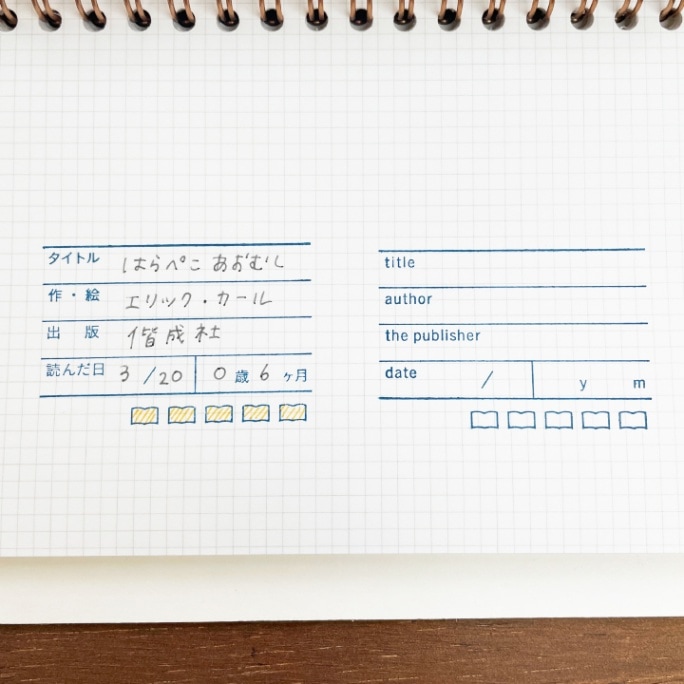 タイトル はらぺこ あおむし
作・絵 エリック・カール
出 版 偕成社
読んだ日 3 /20 0 歳 6 ヶ月
title
author
the publisher
date / y m